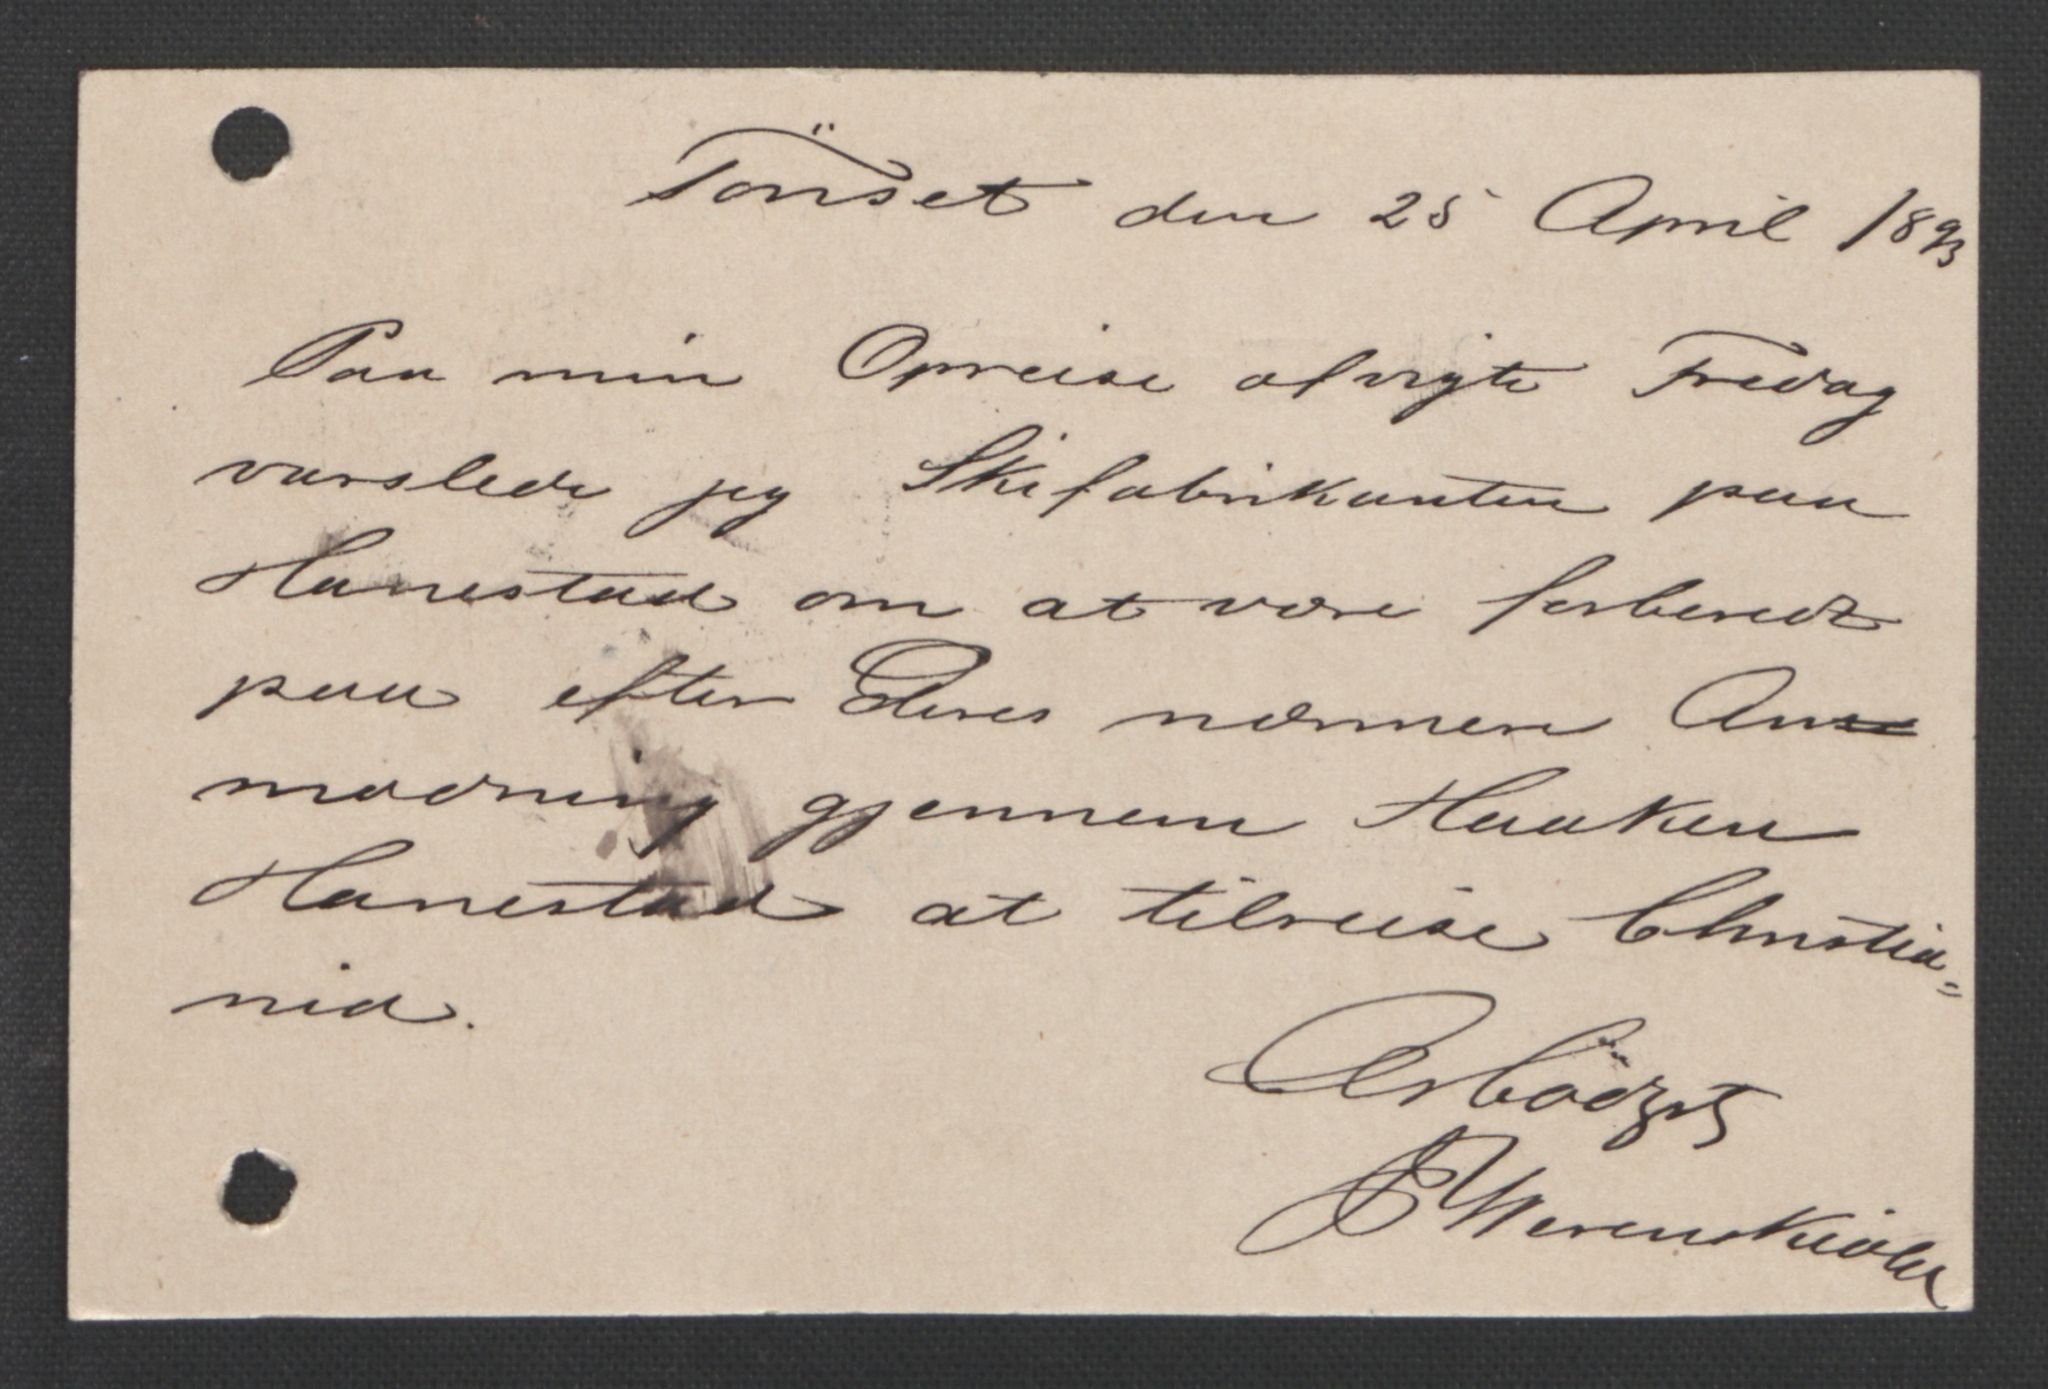 Tönset den 25 April 1893
Paa min Opreise afvigte Fredag
varslede jeg Skifabrikanten paa
Hanestad om at være forberedt
paa efter Deres nærmere An=
modning gjennem Haaken
Hanestad at tilreise Christia=
nia.
Ærbödigst
Werenskiold